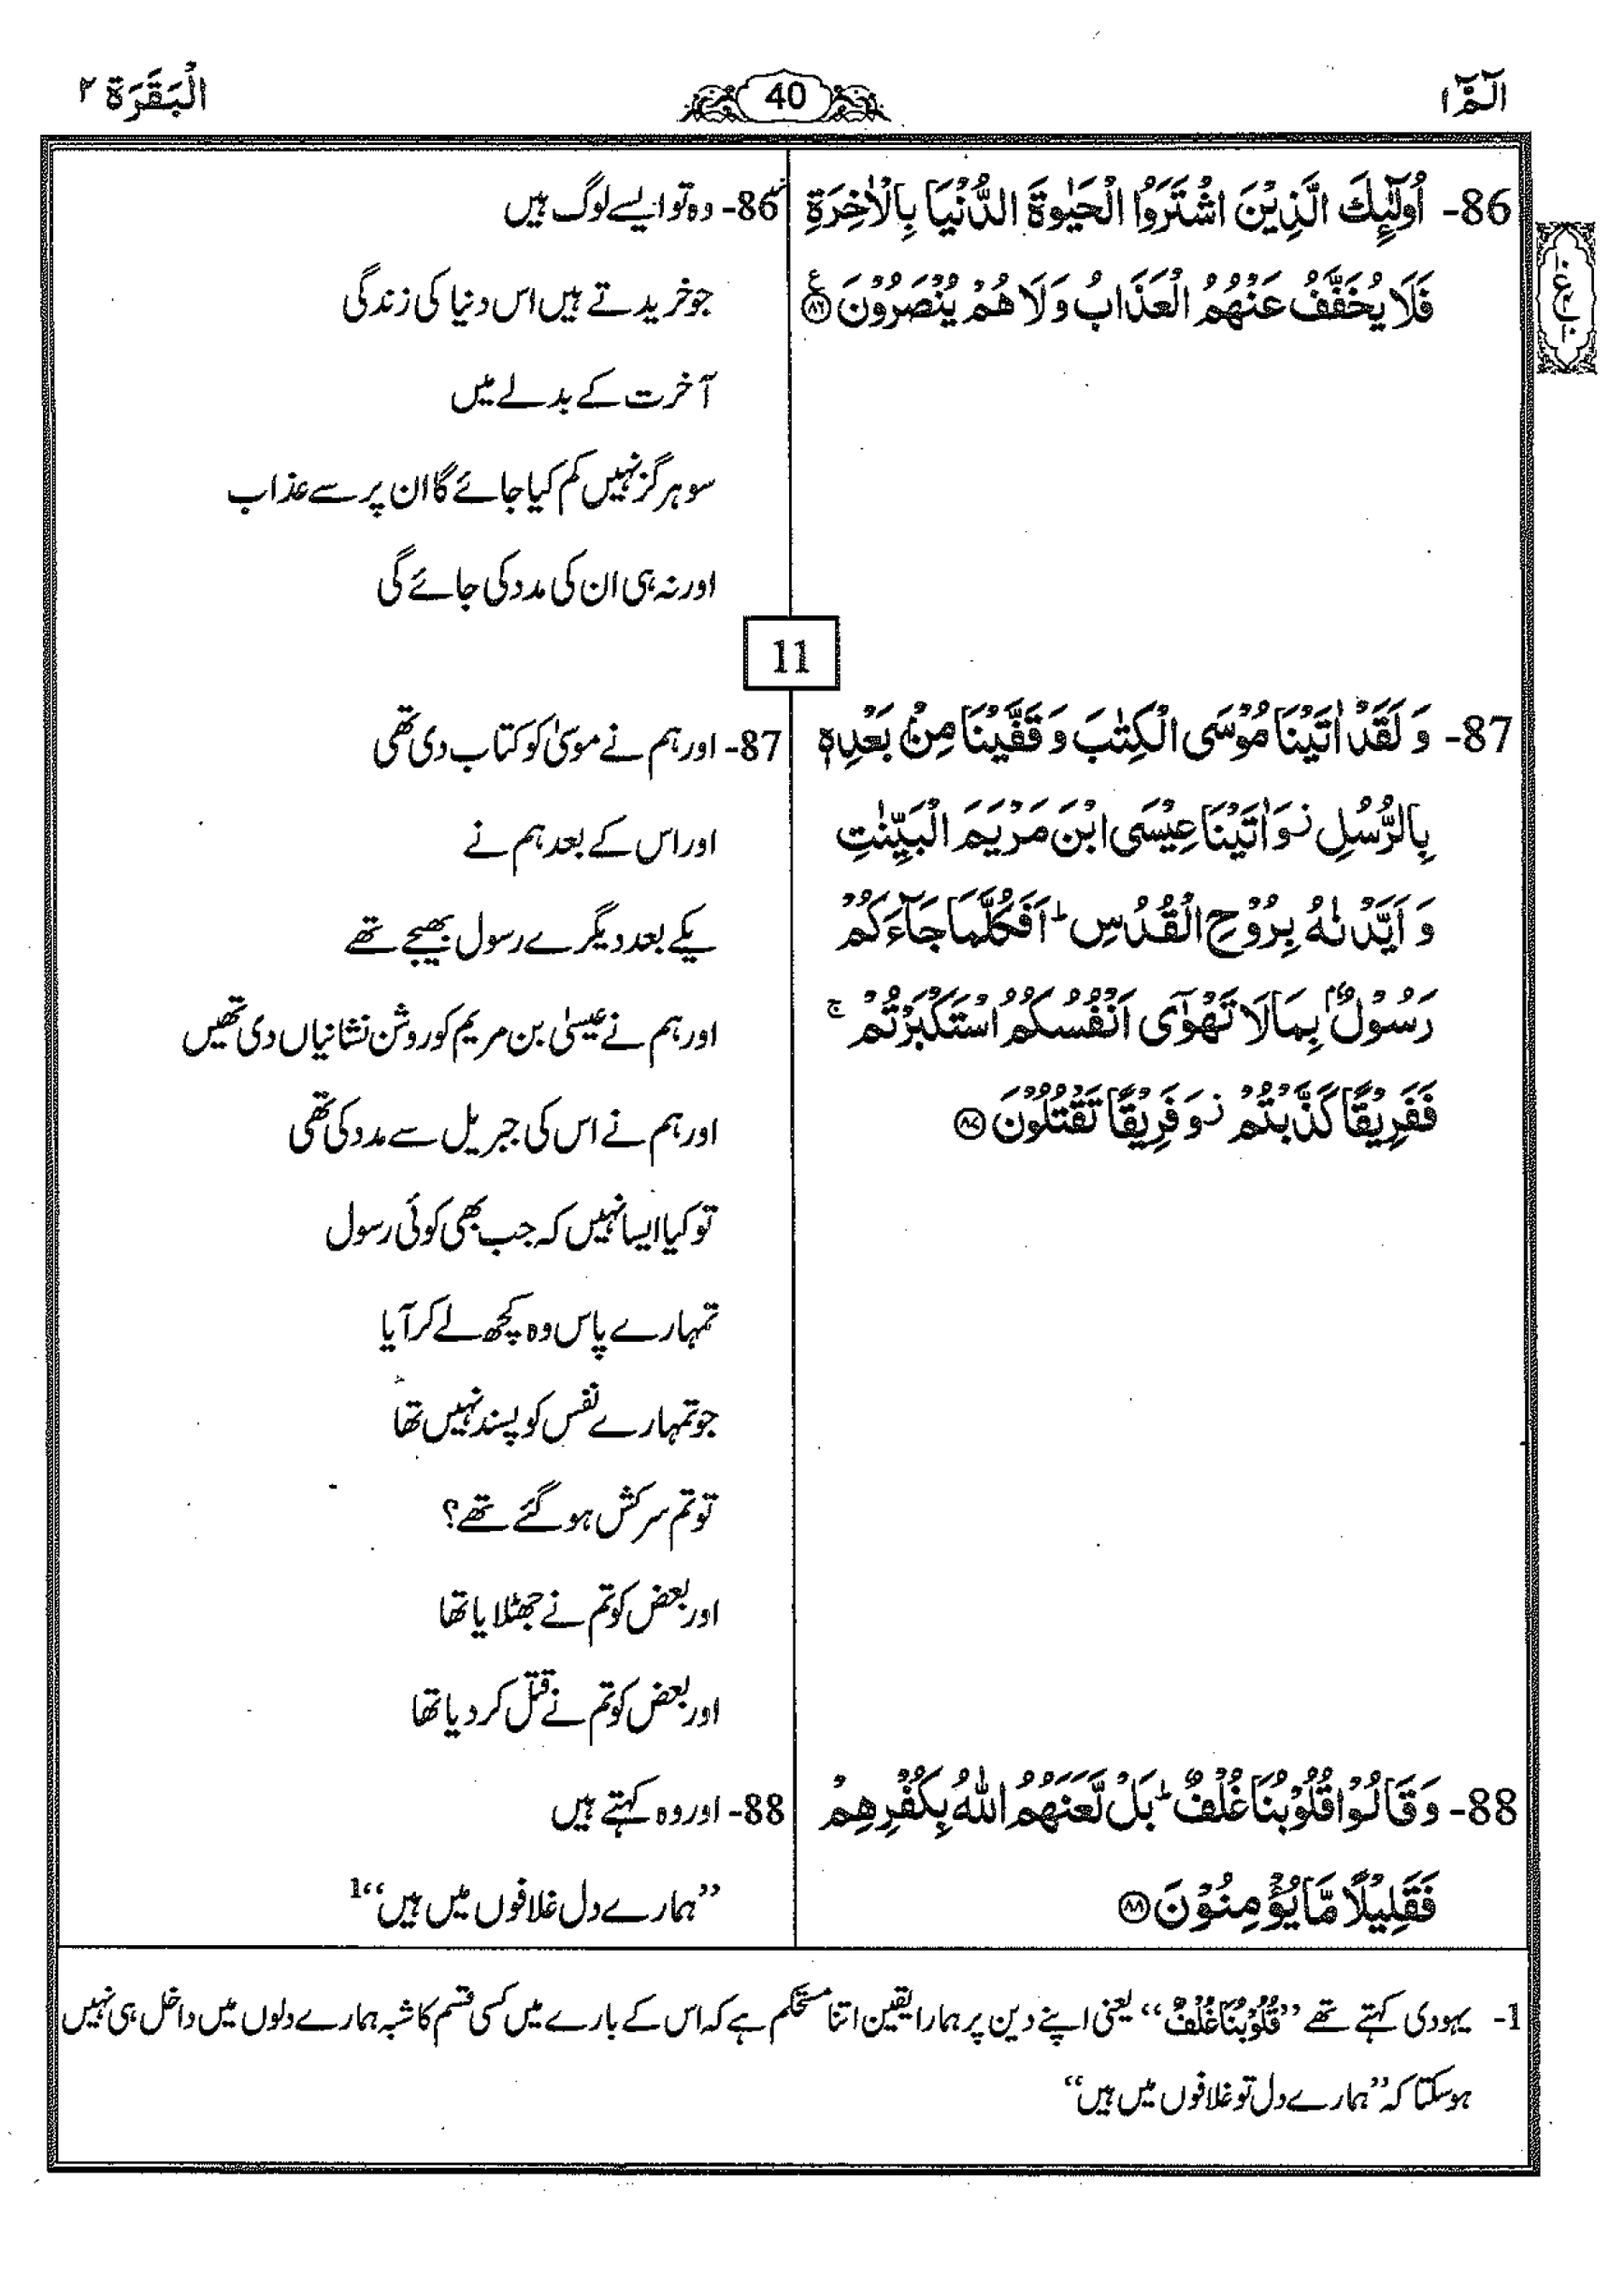 الٓمّٓ ۱
40
الْبَقَرَة ۲
86- اُولٰٓئِكَ الَّذِيْنَ اشْتَرَوُا الْحَيٰوةَ الدُّنْيَا بِالْاٰخِرَةِ
فَلَا يُخَفَّفُ عَنْهُمُ الْعَذَابُ وَلَا هُمْ يُنْصَرُوْنَ ۟ع ﴿۸۶﴾
86- وہ تو ایسے لوگ ہیں
جو خریدتے ہیں اس دنیا کی زندگی
آخرت کے بدلے میں
سو ہرگز نہیں کم کیا جائے گا ان پر سے عذاب
اور نہ ہی ان کی مدد کی جائے گی
11
87- وَ لَقَدْ اٰتَيْنَا مُوْسَى الْكِتٰبَ وَ قَفَّيْنَا مِنْۢ بَعْدِهٖ
بِالرُّسُلِ ز وَ اٰتَيْنَا عِيْسَى ابْنَ مَرْيَمَ الْبَيِّنٰتِ
وَ اَيَّدْنٰهُ بِرُوْحِ الْقُدُسِ ؕ اَفَكُلَّمَا جَآءَكُمْ
رَسُوْلٌۢ بِمَا لَا تَهْوٰٓى اَنْفُسُكُمُ اسْتَكْبَرْتُمْ ۚ
فَفَرِيْقًا كَذَّبْتُمْ ز وَ فَرِيْقًا تَقْتُلُوْنَ ﴿۸۷﴾
87- اور ہم نے موسیٰ کو کتاب دی تھی
اور اس کے بعد ہم نے
یکے بعد دیگرے رسول بھیجے تھے
اور ہم نے عیسیٰ بن مریم کو روشن نشانیاں دی تھیں
اور ہم نے اس کی جبریل سے مدد کی تھی
تو کیا ایسا نہیں کہ جب بھی کوئی رسول
تمہارے پاس وہ کچھ لے کر آیا
جو تمہارے نفس کو پسند نہیں تھا
تو تم سرکش ہو گئے تھے؟
اور بعض کو تم نے جھٹلایا تھا
اور بعض کو تم نے قتل کر دیا تھا
88- وَ قَالُوْا قُلُوْبُنَا غُلْفٌ ؕ بَلْ لَّعَنَهُمُ اللّٰهُ بِكُفْرِهِمْ
فَقَلِيْلًا مَّا يُؤْمِنُوْنَ ﴿۸۸﴾
88- اور وہ کہتے ہیں
’’ہمارے دل غلافوں میں ہیں‘‘1
1- یہودی کہتے تھے ’’قُلُوْبُنَا غُلْفٌ‘‘ یعنی اپنے دین پر ہمارا یقین اتنا مستحکم ہے کہ اس کے بارے میں کسی قسم کا شبہ ہمارے دلوں میں داخل ہی نہیں
ہو سکتا کہ ’’ہمارے دل تو غلافوں میں ہیں‘‘